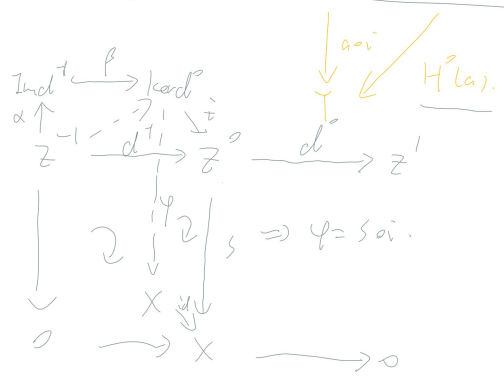 a∘i
Y
H⁰(a).
Im d⁻¹ β ker d⁰
α i
Z⁻¹ d⁻¹ Z⁰ d⁰ Z¹
φ
s ⇒ φ = s∘i.
X id
0 X 0